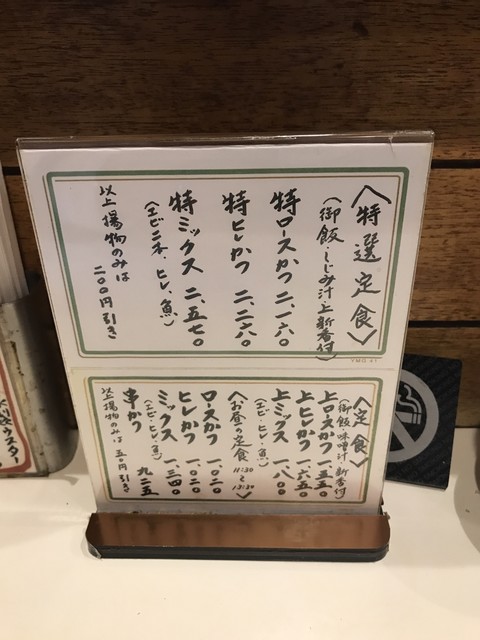 〈特選定食〉
(御飯・しじみ汁・上新香付)
特ロースかつ 二、一六〇
特ヒレかつ 二、二六〇
特ミックス 二、五七〇
(エビ二本、ヒレ、魚)
以上揚物のみは
二〇〇円引き
YMG-41
〈定食〉
(御飯・味噌汁・新香付)
上ロースかつ 一五五〇
上ヒレかつ 一六五〇
上ミックス 一八〇〇
(エビ・ヒレ・魚)
〈お昼の定食〉
11:30～13:30
ロースかつ 一、〇二〇
ヒレかつ 一、〇二〇
ミックス 一三四〇
(エビ・ヒレ・魚)
串かつ 九二五
以上揚物のみは 五〇円引き
ウスター